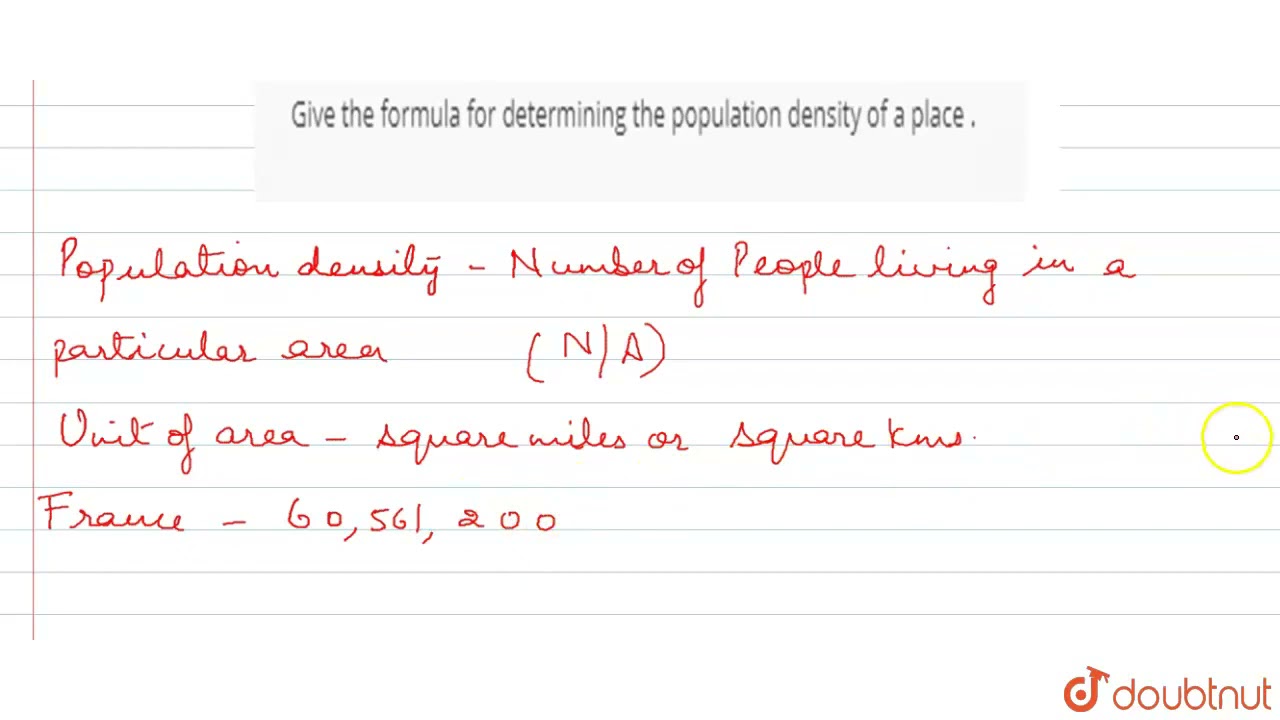 Give the formula for determining the population density of a place .
Population density - Number of People living in a
particular area (N/A)
Unit of area - square miles or square kms.
France - 60,561,200
doubtnut